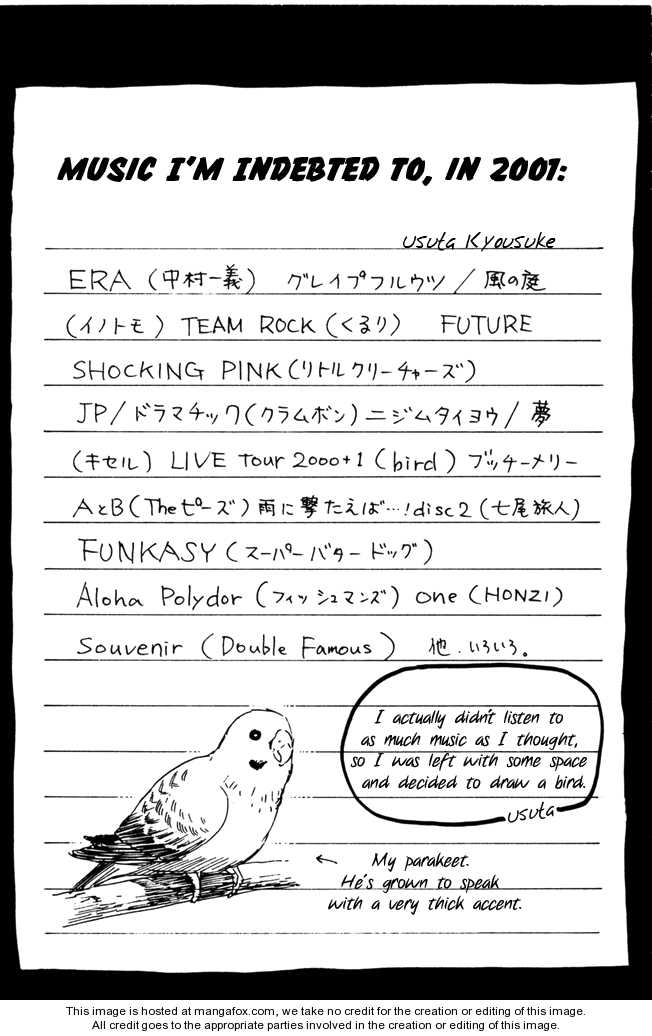 MUSIC I'M INDEBTED TO, IN 2001:
Usuta Kyousuke
ERA (中村一義) グレイプフルウツ / 風の庭
(イノトモ) TEAM ROCK (くるり) FUTURE
SHOCKING PINK (リトルクリーチャーズ)
JP / ドラマチック (クラムボン) ニジムタイヨウ / 夢
(キセル) LIVE Tour 2000+1 (bird) ブッチーメリー
AとB (Theピーズ) 雨に撃たえば…! disc 2 (七尾旅人)
FUNKASY (スーパーバタードッグ)
Aloha Polydor (フィッシュマンズ) one (HONZI)
Souvenir (Double Famous) 他. いろいろ。
I actually didn't listen to
as much music as I thought,
so I was left with some space
and decided to draw a bird.
usuta
← My parakeet.
He's grown to speak
with a very thick accent.
This image is hosted at mangafox.com, we take no credit for the creation or editing of this image.
All credit goes to the appropriate parties involved in the creation or editing of this image.